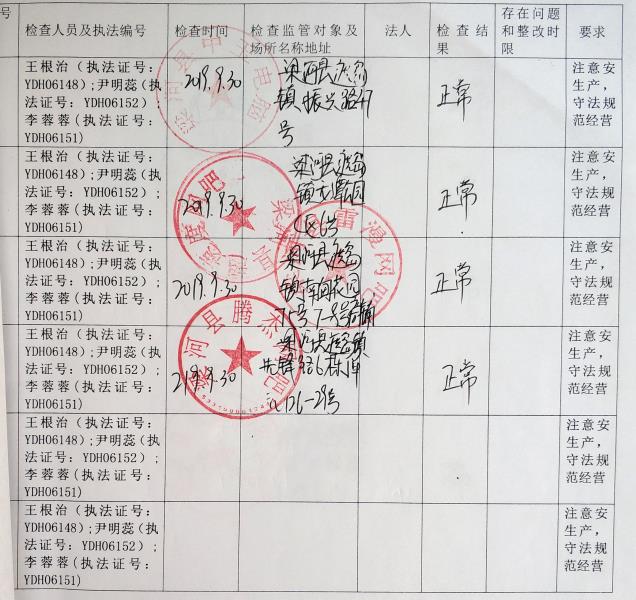 号
检查人员及执法编号 检查时间 检查监管对象及场所名称地址 法人 检查结果 存在问题和整改时限 要求
王根治（执法证号：
YDH06148）;尹明蕊(执
法证号：YDH06152）;
李蓉蓉(执法证号：
YDH06151)
2019.9.30
梁河县遮岛
镇振兴路47
号
正常
注意安
生产，
守法规
范经营
王根治（执法证号：
YDH06148）;尹明蕊(执
法证号：YDH06152）;
李蓉蓉(执法证号：
YDH06151)
2019.9.30
梁河县遮岛
正常
注意安
生产，
守法规
范经营
王根治（执法证号：
YDH06148）;尹明蕊(执
法证号：YDH06152）;
李蓉蓉(执法证号：
YDH06151)
2019.9.30
梁河县遮岛
正常
注意安
生产，
守法规
范经营
王根治（执法证号：
YDH06148）;尹明蕊(执
法证号：YDH06152）;
李蓉蓉(执法证号：
YDH06151)
219.9.30
梁河县遮岛镇
正常
注意安
生产，
守法规
范经营
梁河县腾杰网吧
王根治（执法证号：
YDH06148）;尹明蕊(执
法证号：YDH06152）;
李蓉蓉(执法证号：
YDH06151)
注意安
生产，
守法规
范经营
王根治（执法证号：
YDH06148）;尹明蕊(执
法证号：YDH06152）;
李蓉蓉(执法证号：
YDH06151)
注意安
生产，
守法规
范经营